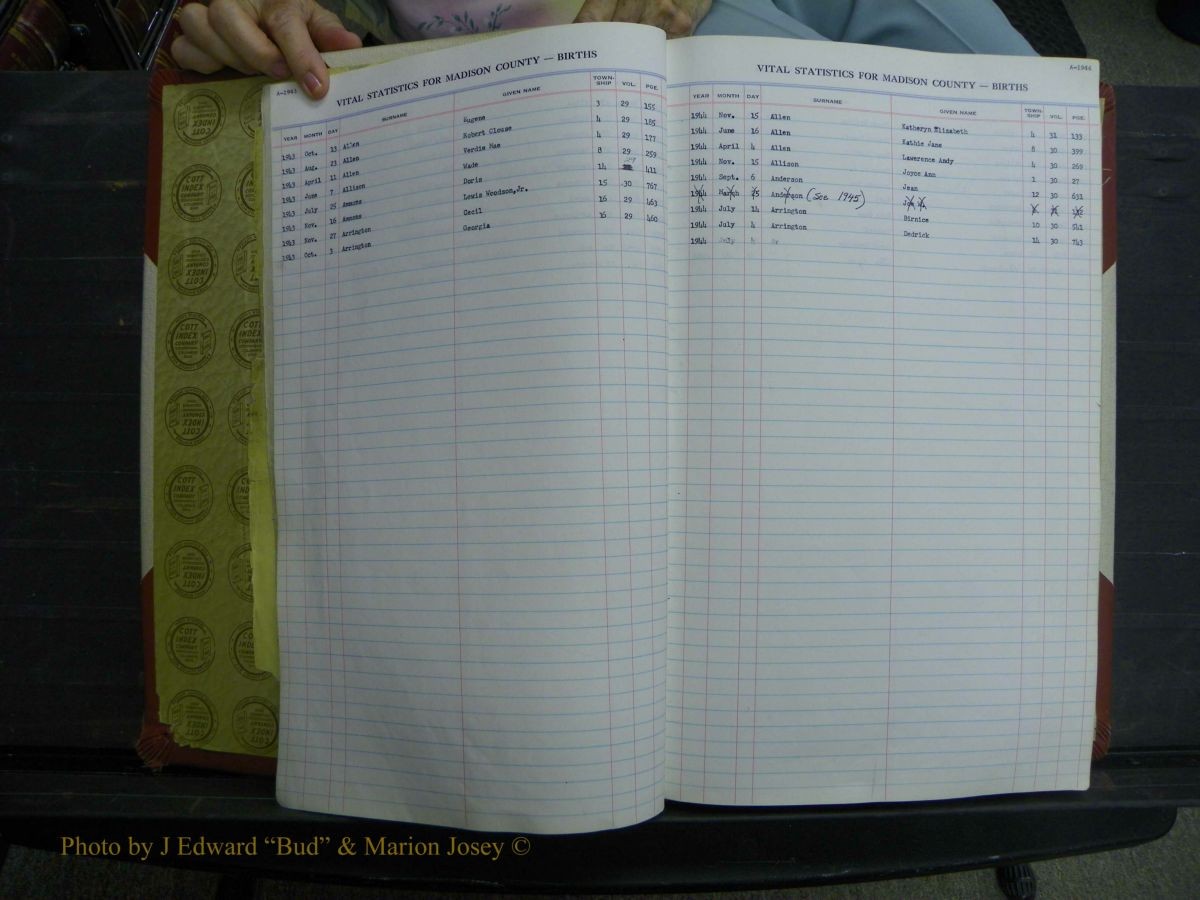 A-1943
VITAL STATISTICS FOR MADISON COUNTY — BIRTHS
YEAR MONTH DAY SURNAME GIVEN NAME TOWN-SHIP VOL. PGE.
1943 Oct. 13 Allen Eugene 3 29 155
1943 Aug. 23 Allen Robert Clouse 4 29 185
1943 April 11 Allen Verdie Mae 4 29 177
1943 June 7 Allison Wade 8 29 259
1943 July 25 Ammons Doris 14 29 411
1943 Nov. 16 Ammons Lewis Woodson,Jr. 15 30 767
1943 Nov. 27 Arrington Cecil 16 29 463
1943 Oct. 3 Arrington Georgia 16 29 460
A-1944
VITAL STATISTICS FOR MADISON COUNTY — BIRTHS
YEAR MONTH DAY SURNAME GIVEN NAME TOWN-SHIP VOL. PGE.
1944 Nov. 15 Allen Katheryn Elizabeth 4 31 133
1944 June 16 Allen Kathie Jane 8 30 399
1944 April 4 Allen Lawerence Andy 4 30 269
1944 Nov. 15 Allison Joyce Ann 1 30 27
1944 Sept. 6 Anderson Jean 12 30 631
1944 March 25 Anderson (See 1945)
1944 July 14 Arrington Birnice 10 30 541
1944 July 4 Arrington Dedrick 14 30 743
1944 July
COTT INDEX COMPANY
Photo by J Edward “Bud” & Marion Josey ©